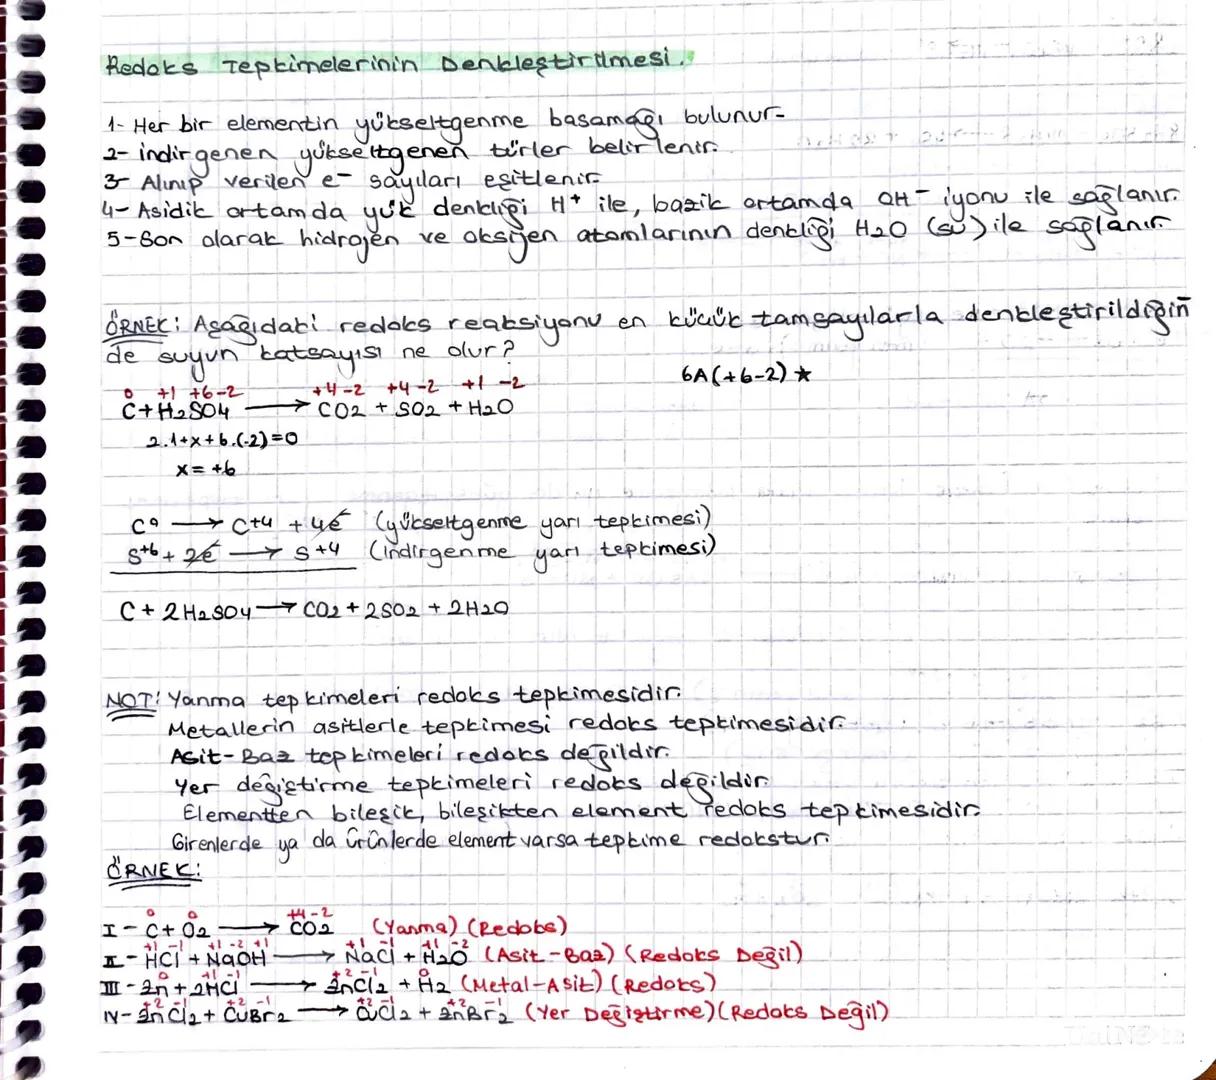 Redoks Tepkimelerinin Denkleştirilmesi.
1- Her bir elementin yükseltgenme basamağı bulunur.
2- indirgenen yükseltgenen türler belirlenir.
3- Alınıp verilen e- sayıları eşitlenir.
4- Asidik ortamda yük denkliği H+ ile, bazik ortamda OH- iyonu ile sağlanır.
5-Son olarak hidrojen ve oksijen atomlarının denkliği H2O (su) ile sağlanır.
ÖRNEK: Aşağıdaki redoks reaksiyonu en küçük tamsayılarla denkleştirildiğin
de suyun katsayısı ne olur?
6A(+6-2) ★
0 +1 +6-2 +4-2 +4-2 +1 -2
C+H2SO4 → CO2 + SO2 + H2O
2.1+x+6.(-2)=0
x= +6
C0 → C+4 + 4e- (yükseltgenme yarı tepkimesi)
S+6 + 2e- → S+4 (indirgenme yarı tepkimesi)
C + 2H2SO4 → CO2 + 2SO2 + 2H2O
NOT: Yanma tepkimeleri redoks tepkimesidir.
Metallerin asitlerle tepkimesi redoks tepkimesidir.
Asit-Baz tepkimeleri redoks değildir.
Yer değiştirme tepkimeleri redoks değildir.
Elementten bileşik, bileşikten element redoks tepkimesidir.
Girenlerde ya da ürünlerde element varsa tepkime redokstur.
ÖRNEK:
0 0 +4-2
I- C+ O2 → CO2 (Yanma) (Redoks)
+1 -1 +1 -2 +1 +1 -1 +1 -2
II- HCl + NaOH → NaCl + H2O (Asit-Baz) (Redoks Değil)
0 +1 -1 +2 -1 0
III- Zn + 2HCl → ZnCl2 + H2 (Metal-Asit) (Redoks)
+2 -1 +2 -1 +2 -1 +2 -1
IV- ZnCl2 + CuBr2 → CuCl2 + ZnBr2 (Yer Değiştirme) (Redoks Değil)